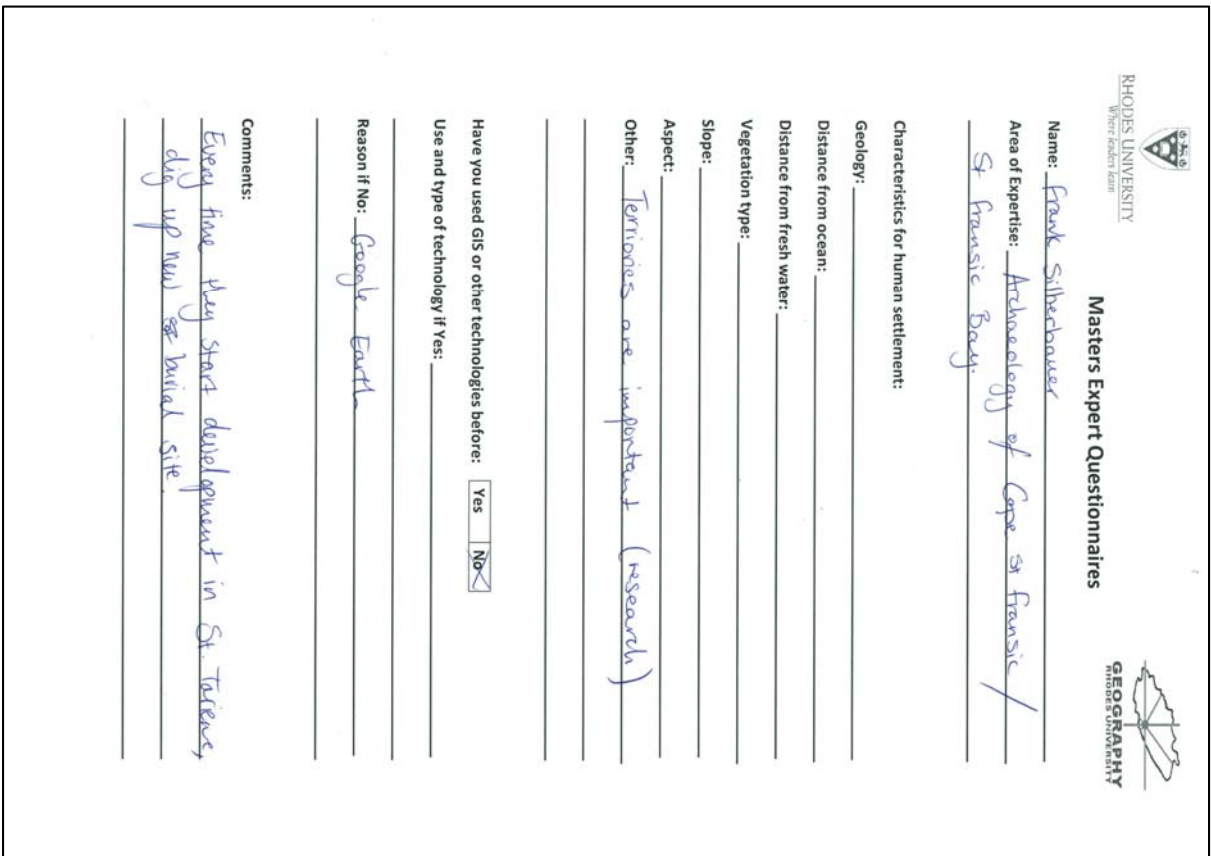 RHODES UNIVERSITY
Where leaders learn
Masters Expert Questionnaires
GEOGRAPHY
RHODES UNIVERSITY
Name: Frank Silberbauer
Area of Expertise: Archaeology of Cape St Fransic /
St Fransic Bay.
Characteristics for human settlement:
Geology:
Distance from ocean:
Distance from fresh water:
Vegetation type:
Slope:
Aspect:
Other: Terriories are important (research)
Have you used GIS or other technologies before: Yes No
Use and type of technology if Yes:
Reason if No: Google Earth
Comments:
Every time they start development in St.
dig up new burial site.